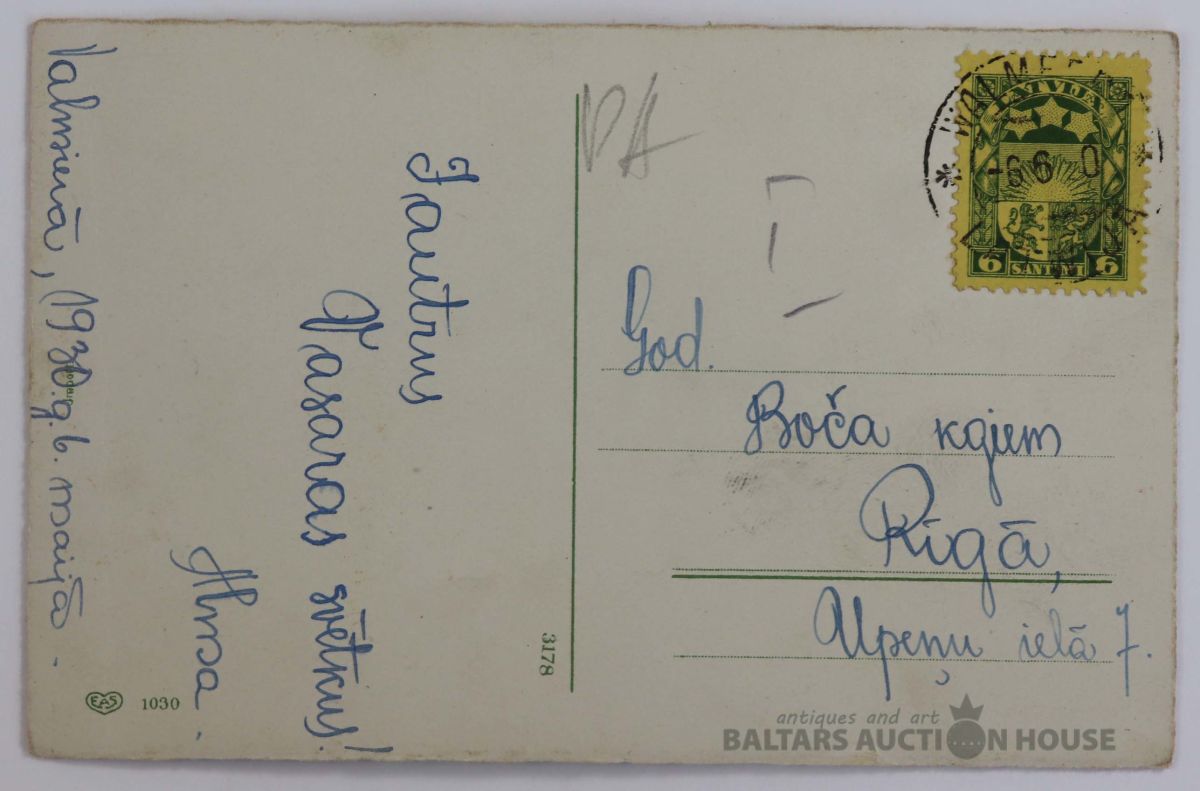 Valmierā, 1930.g. 6. maijā.
Jautrus
Vasaras svētkus!
Alma.
God.
Boča kgiem
Rīgā,
Upeņu ielā 7.
LATVIJA
6 SANTIMI 6
-6 6 0
3178
EAS 1030
antiques and art
BALTARS AUCTION HOUSE